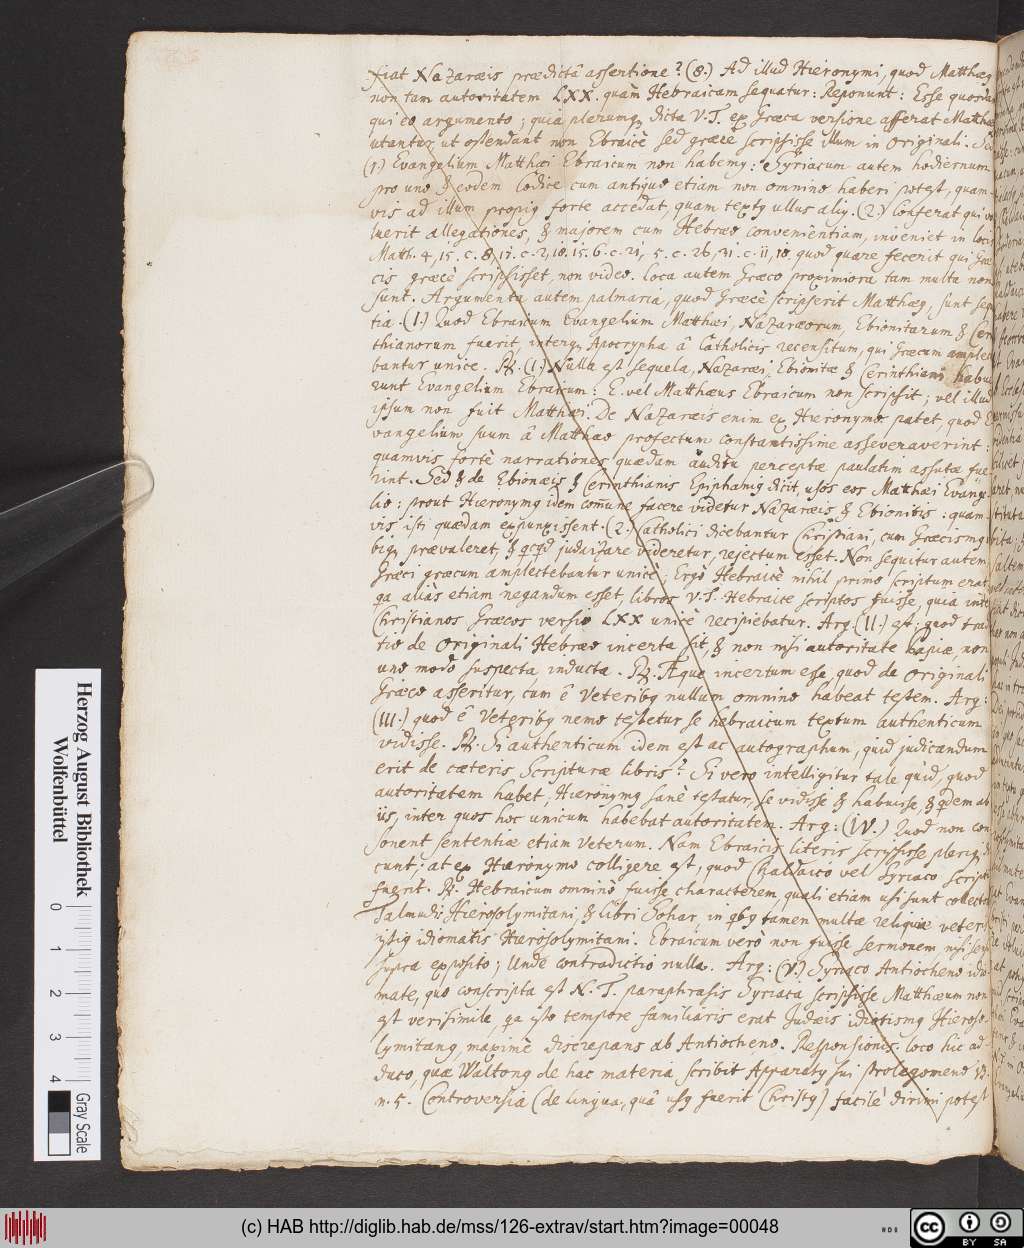 fiat Nazaræis prædictâ assertione? (8.) Ad illud Hieronymi, quod Matthæg
non tam autoritatem LXX. quàm Hebraicam sequatur: Reponunt: Esse quosdã
qui eo argumento; quia plerumq dicta V.T. ex Græca versione afferat Matthæ
utantur, ut ostendant non Ebraicè sed græcè scripsisse illum in Originali. Sed
(1.) Evangelium Matthæi Ebraicum non habemg: Syriacum autem hodiernum
pro uno & eodem Codice cum antiquo etiam non omnino haberi potest, quam-
vis ad illum propig forte accedat, quam textg ullus alig. (2.) Conferat qui vo
luerit allegationes, & majorem cum Hebræo convenientiam, inveniet in locis
Matth. 4, 15. c. 8, 17. c. 2, 18. 15. 6. c. 21, 5. c. 26, 31. c. 11, 10. quod quare fecerit qui Græ
cis græcè scripsisset, non video. loca autem Græco proximiora tam multa non
sunt. Argumenta autem palmaria, quod Græcè scripserit Matthæg, sunt seq
tia. (1.) Quod Ebraicum Evangelium Matthæi, Nazaræorum, Ebionitarum & Cer
thianorum fuerit, interq Apocrypha â Catholicis recensitum, qui Græcum amplec
bantur unicè. R. (1.) Nulla est sequela, Nazaræi, Ebionitæ & Cerinthiani habue
runt Evangelium Ebraicum: E. vel Matthæus Ebraicum non scripsit; vel illud
ipsum non fuit Matthæi. De Nazaræis enim ex Hieronymo patet, quod E
vangelium suum â Matthæo profectum constantissime asseveraverint
quamvis fortè narrationes quædam auditu perceptæ paulatim assutæ fue
rint. Sed & de Ebionæis & Cerinthianis Epiphanig dicit, usos eos Matthæi Evange
lio: prout Hieronymg idem com̃une facere videtur Nazaræis & Ebionitis: quam
vis isti quædam expunxissent. (2.) Catholici dicebantur Christiani, cum Græcismg
biq prævaleret, & qcqd judaizare videretur, rejectum esset. Non sequitur autem
Græci græcum amplectebantur unicè; Ergò Hebraicè nihil primo scriptum erat
qa aliàs etiam negandum esset, libros V.T. Hebraicè scriptos fuisse, quia inte
Christianos Græcos versio LXX unicè recipiebatur. Arg. (II.) est: quod tra
tio de Originali Hebræo incerta sit, & non nisi autoritate Papiæ, non
uno modo suspecta, inducta. R. Æque incertum esse, quod de Originali
Græco asseritur, cum ê Veteribg nullum omnino habeat testem. Arg:
(III.) quod ê Veteribg nemo testetur se hebraicum textum authenticum
vidisse. R. Si authenticum idem est ac autographum, quid judicandum
erit de cæteris Scripturæ libris? Si vero intelligitur tale quid, quod
autoritatem habet, Hieronymg sanè testatur, se vidisse & habuisse, & qdem ab
iis, inter quos hoc unicum habebat autoritatem. Arg: (IV.) Quod non con
sonent sententiæ etiam Veterum. Nam Ebraicis literis scripsisse plerig di
cunt; at ex Hieronymo colligere est, quod Chaldaico vel Syriaco scripti
fuerit. R. Hebraicum omnino fuisse characterem, quali etiam usi sunt collectores
Talmudis Hierosolymitani, & libri Sohar, in qbg tamen multæ reliquiæ veteris
istig idiomatis Hierosolymitani. Ebraicum verò non fuisse sermonem, nisi sensu
supra exposito; Unde contradictio nulla. Arg: (V.) Syriaco Antiocheno idio
mate, quo conscripta est N.T. paraphrasis Syriaca scripsisse Matthæum non
est verisimile, qa isto tempore familiaris erat Judæis idiotismg Hieroso-
lymitang, maximè discrepans ab Antiocheno. Responsionis loco hic ad-
duco, quæ Waltong de hac materia scribit Apparatg sui prolegomeno 13.
n. 5. Controversia (de lingua, quâ usg fuerit Christg) facilè dirimi potest
Herzog August Bibliothek
Wolfenbüttel
0 1 2 3 4
Gray Scale
(c) HAB http://diglib.hab.de/mss/126-extrav/start.htm?image=00048
cc BY SA